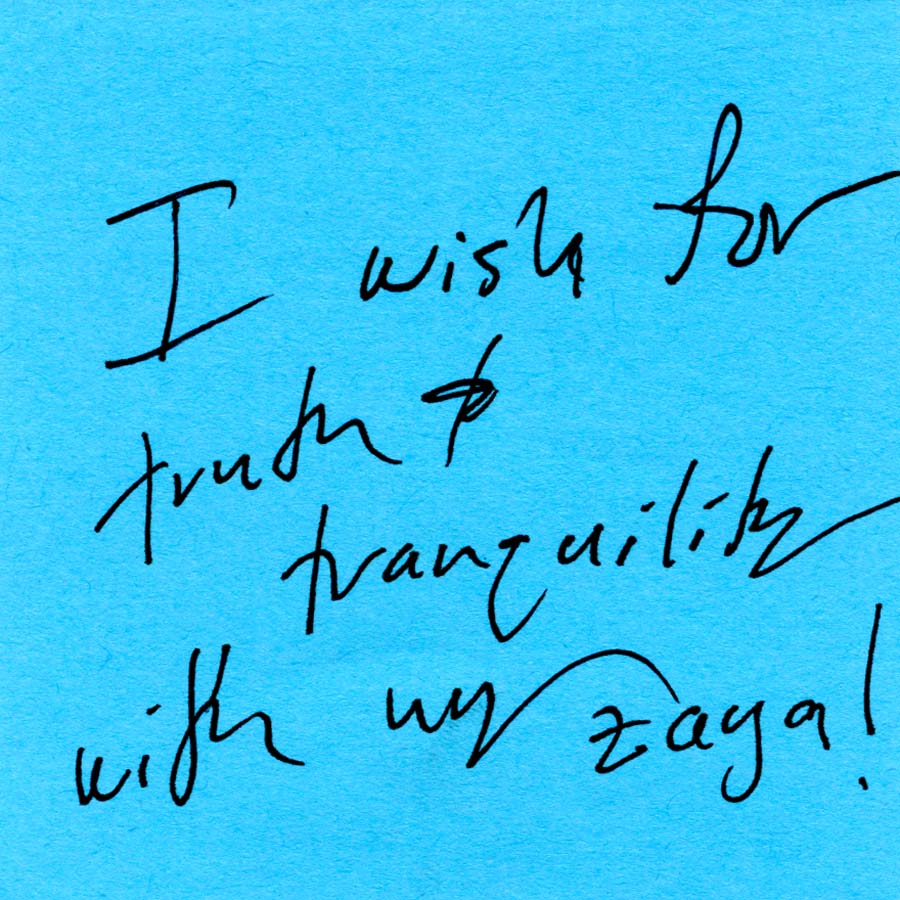 I wish for
truth &
tranquility
with my zaya!